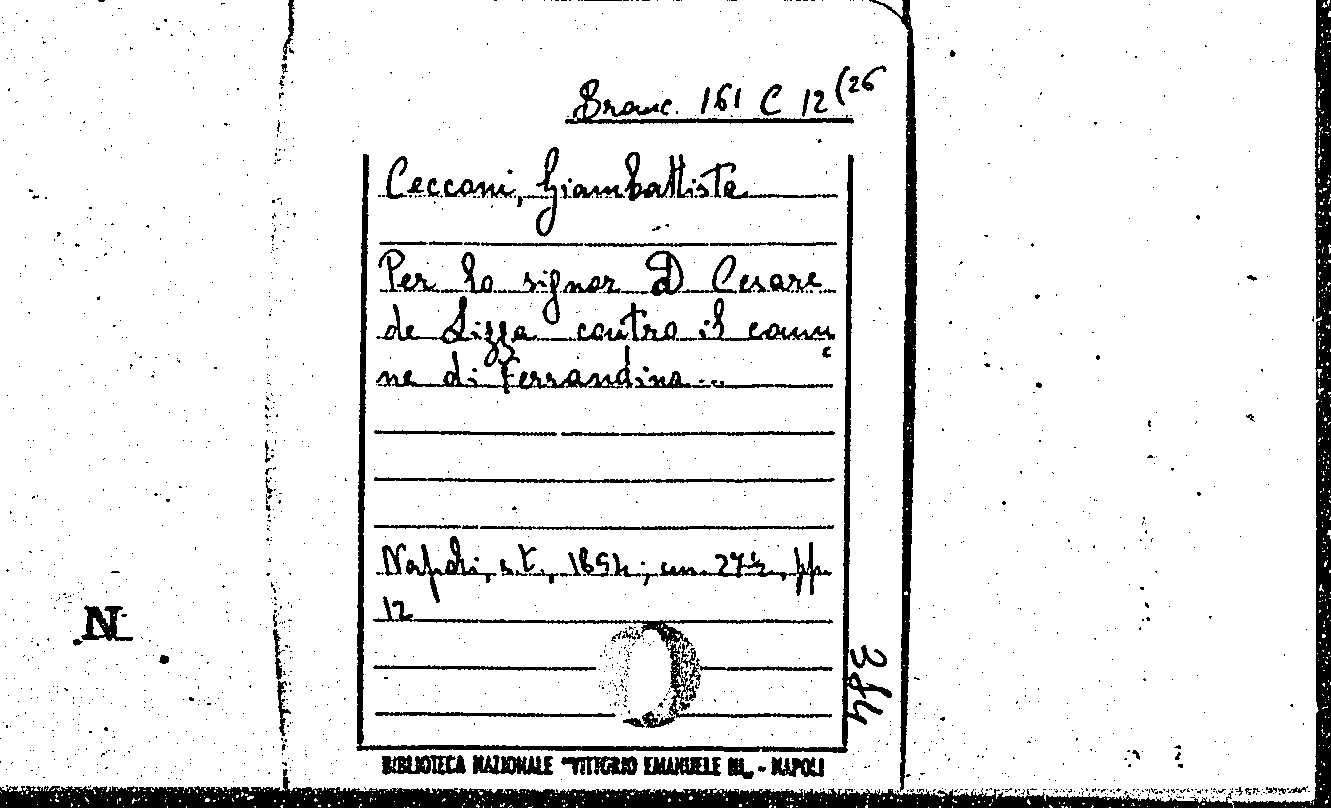 Branc. 161 C 12 (26
Ceccani, Giambattista
Per lo signor D Cesare
de Lizza contro il comu
ne di Ferrandina...
Napoli, s.t., 1854; cm. 27½, pp.
12
384
N
BIBLIOTECA NAZIONALE "VITTORIO EMANUELE III„ - NAPOLI